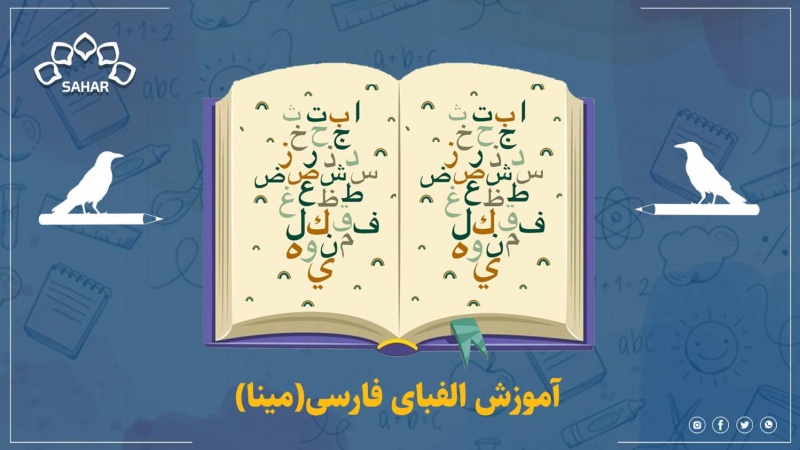 SAHAR
a+b=c
abc
ا ب ت ث
ج ح خ
د ذ ر ز
س ش ص ض
ط ظ ع غ
ف ق ك ل
م ن و ه
ي
ا ب ت ث
ج ح خ
د ذ ر ز
س ش ص ض
ط ظ ع غ
ف ق ك ل
م ن و ه
ي
abc
آموزش الفبای فارسی(مینا)